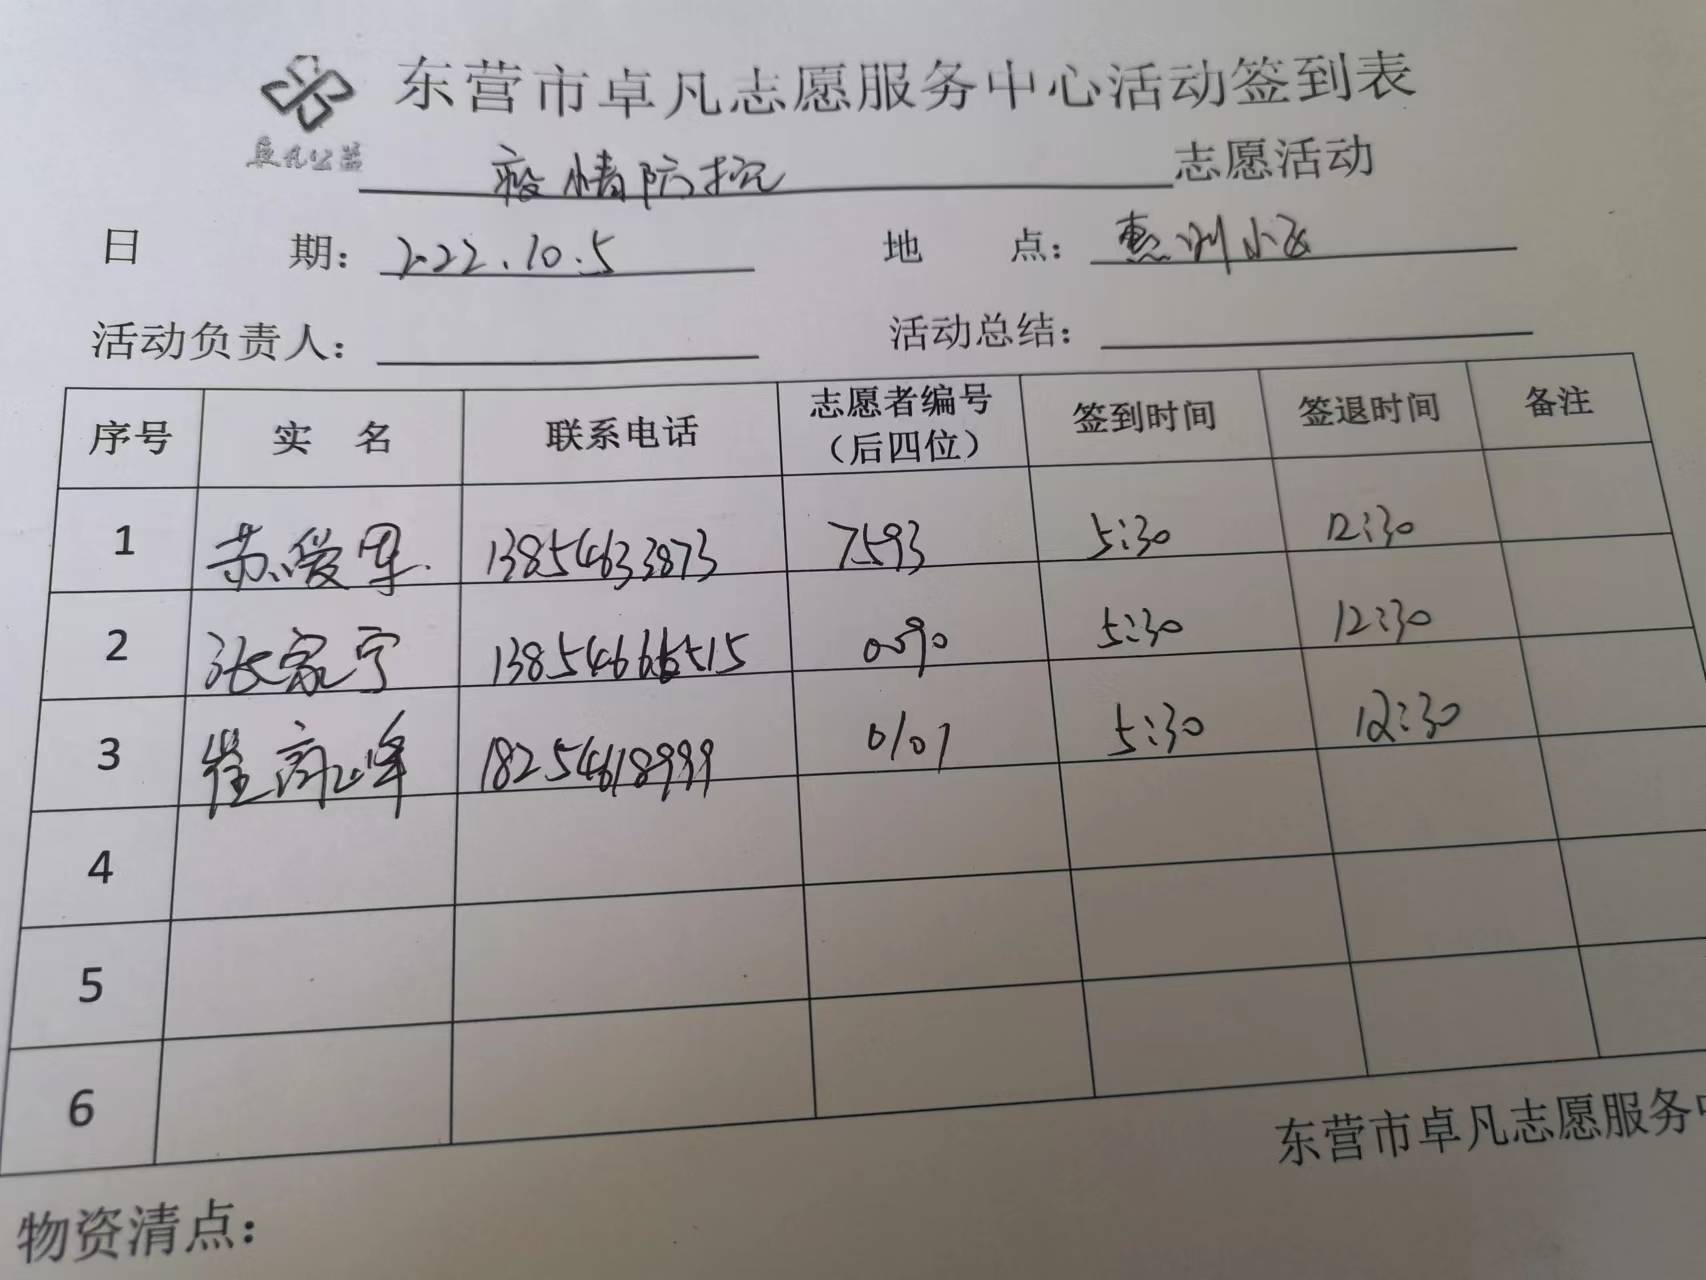 东营市卓凡志愿服务中心活动签到表
卓凡公益
疫情防控志愿活动
日 期：2022.10.5 地 点：惠州小区
活动负责人： 活动总结：
序号 实 名 联系电话 志愿者编号（后四位） 签到时间 签退时间 备注
1 苏爱军 13854633873 7593 5:30 12:30
2 张家宁 13854666515 0090 5:30 12:30
3 崔高峰 18254618999 0107 5:30 12:30
4
5
6
东营市卓凡志愿服务中
物资清点：